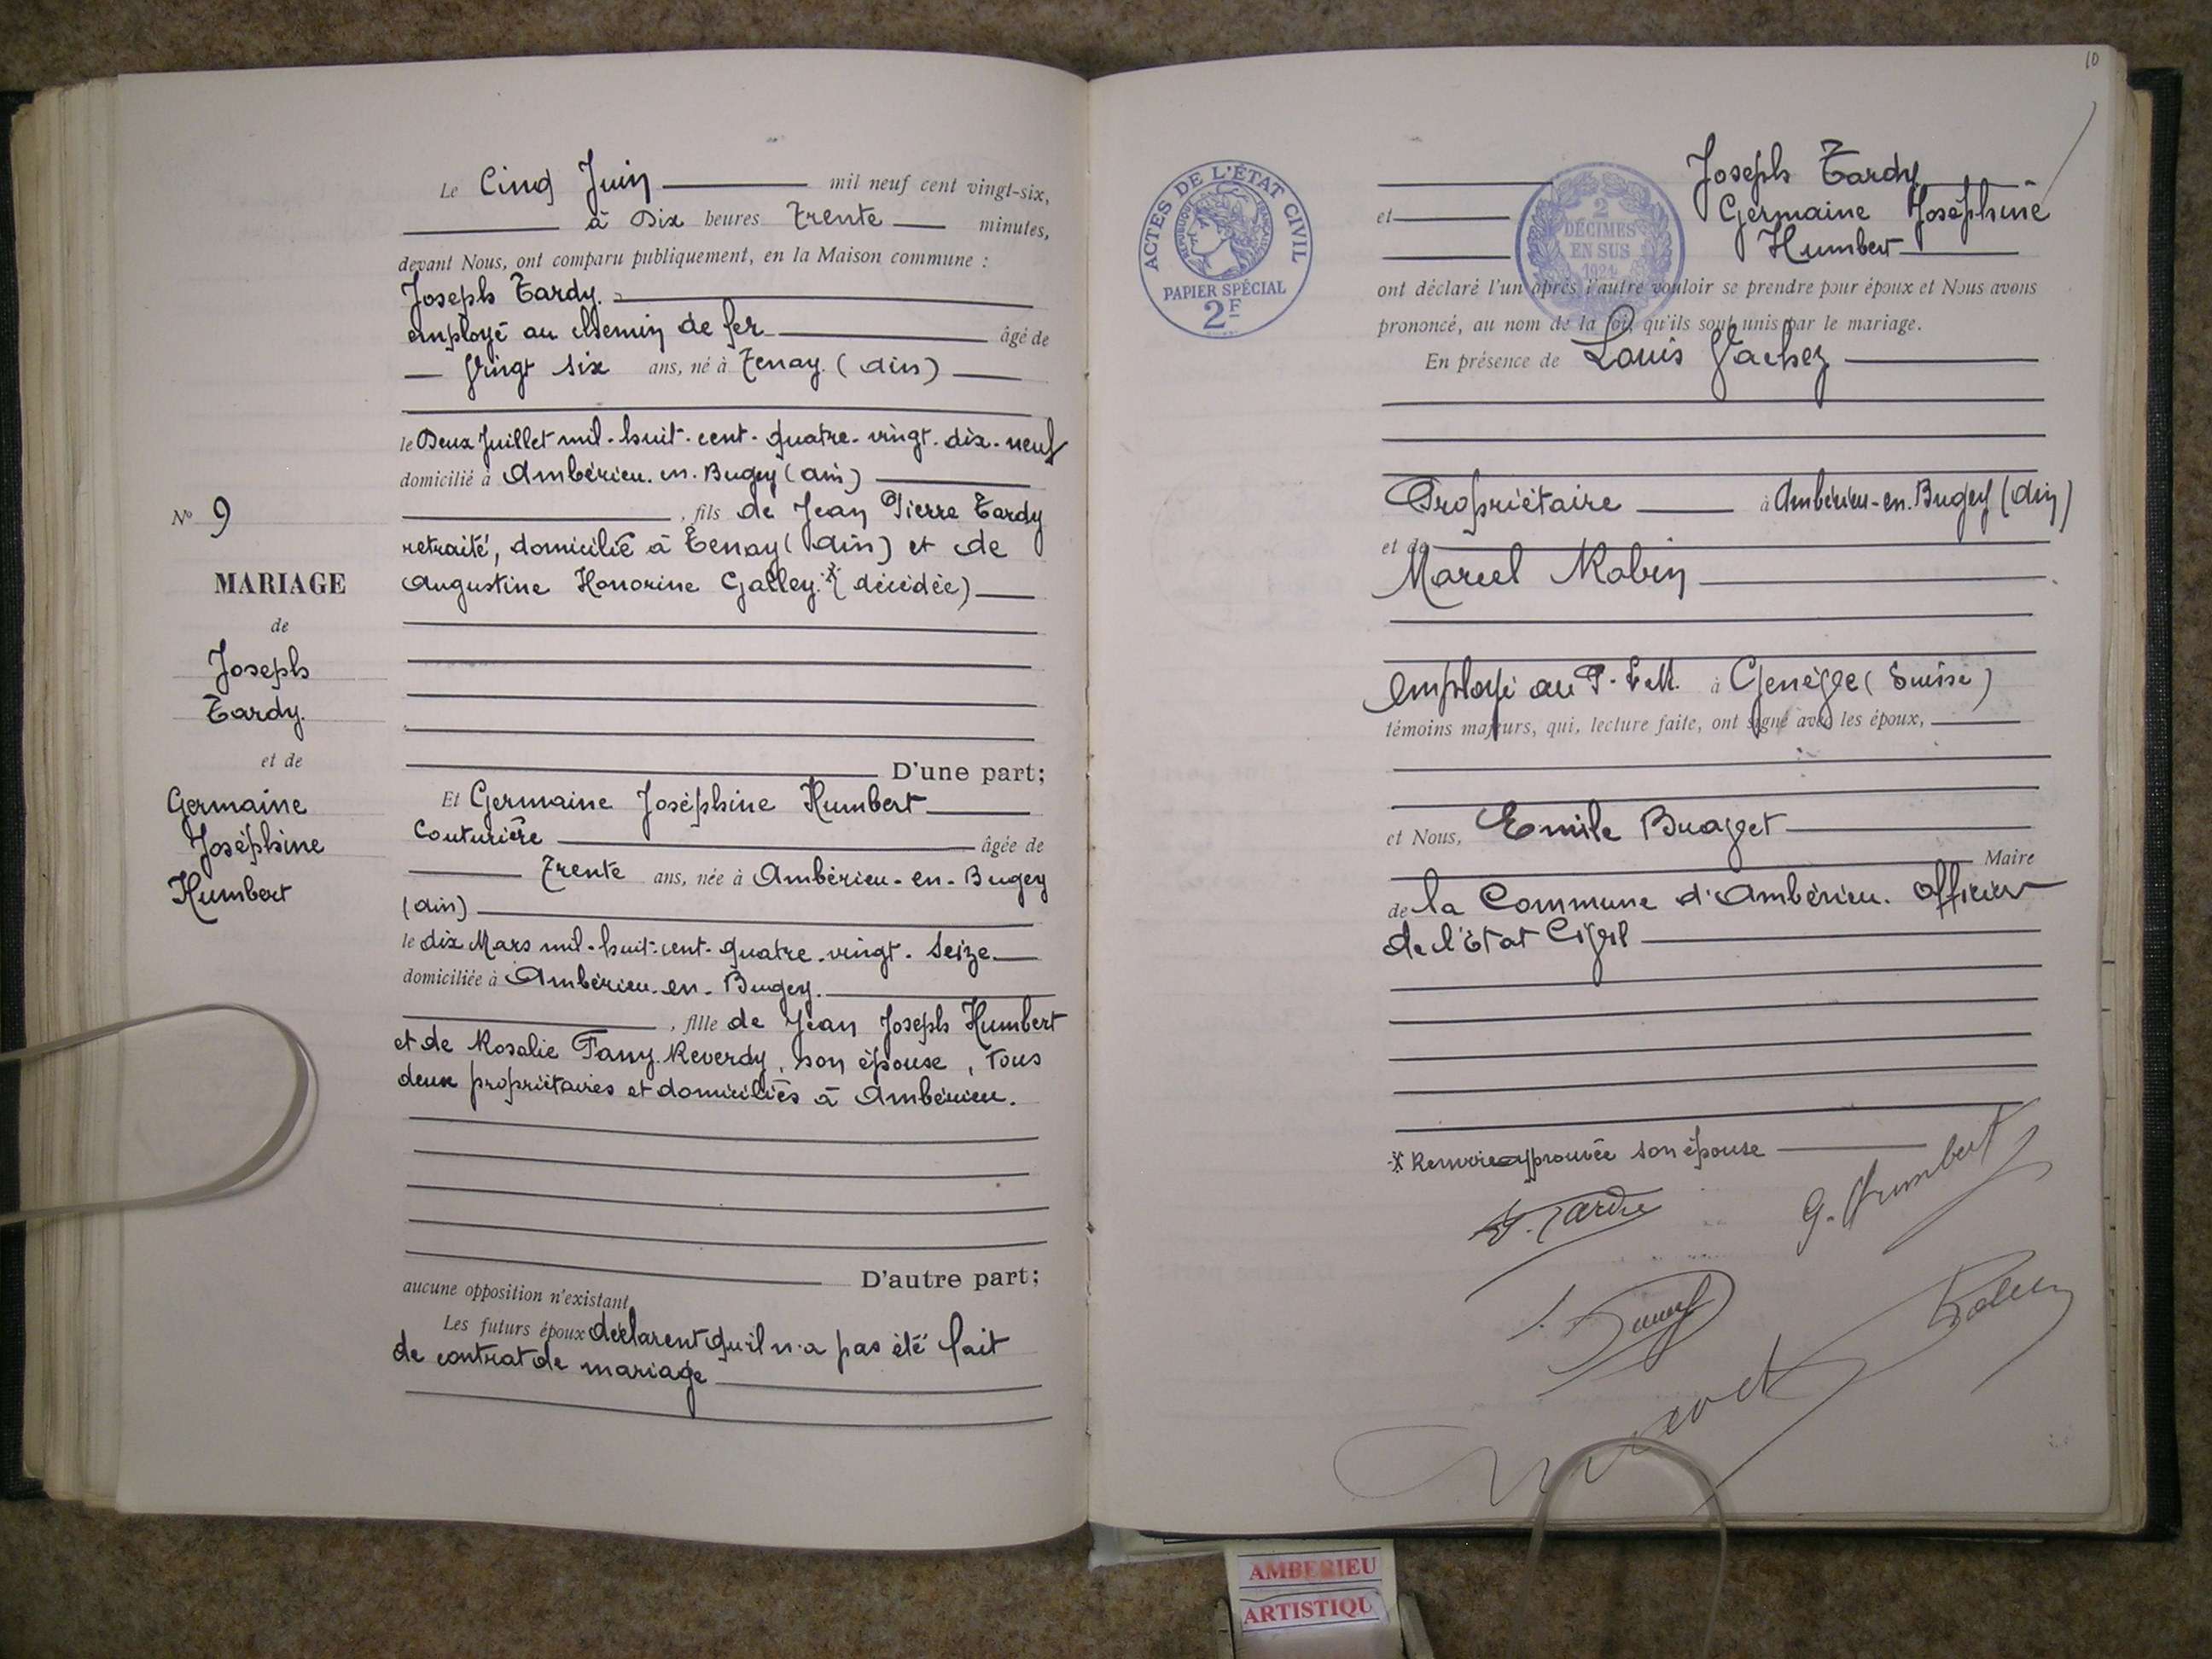 Le Cinq Juin mil neuf cent vingt-six,
à Dix heures Trente minutes,
devant Nous, ont comparu publiquement, en la Maison commune :
Joseph Tardy.
employé au chemin de fer âgé de
Vingt six ans, né à Tenay. (Ain)
le Deux Juillet mil-huit-cent-quatre-vingt-dix-neuf
domicilié à Ambérieu-en-Bugey (Ain)
, fils de Jean Pierre Tardy
retraité, domicilié à Tenay (Ain) et de
Augustine Honorine Galley.* (décédée)
D'une part;
N° 9
MARIAGE
de
Joseph
Tardy.
et de
Germaine
Joséphine
Humbert
Et Germaine Joséphine Humbert
Couturière âgée de
Trente ans, née à Ambérieu-en-Bugey
(Ain)
le dix Mars mil-huit-cent-quatre-vingt-Seize
domiciliée à Ambérieu-en-Bugey.
, fille de Jean Joseph Humbert
et de Rosalie Fany Reverdy, son épouse, tous
deux propriétaires et domiciliés à Ambérieu.
D'autre part;
aucune opposition n'existant
Les futurs époux déclarent qu'il n'a pas été fait
de contrat de mariage
10
ACTES DE L'ÉTAT CIVIL
RÉPUBLIQUE FRANÇAISE
PAPIER SPÉCIAL
2F
2
DÉCIMES
EN SUS
1924
Joseph Tardy
et Germaine Joséphine
Humbert
ont déclaré l'un après l'autre vouloir se prendre pour époux et Nous avons
prononcé, au nom de la loi, qu'ils sont unis par le mariage.
En présence de Louis Vachez
Propriétaire à Ambérieu-en-Bugey (Ain)
et de
Marcel Robin
employé au P.L.M. à Genève (Suisse)
témoins majeurs, qui, lecture faite, ont signé avec les époux,
et Nous, Emile Buaget
Maire
de la Commune d'Ambérieu. Officier
de l'état Civil
* Renvoi approuvée son épouse
J. Tardy
G. Humbert
Robin
AMBERIEU
ARTISTIQU